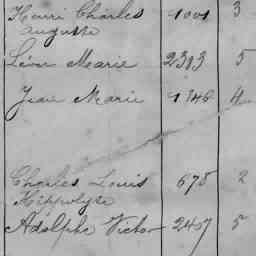 Henri Charles 1001 3
Auguste
Léon Marie 2393 5
Jean Marie 1348 4
Charles Louis 675 2
Hippolyte
Adolphe Victor 2457 5